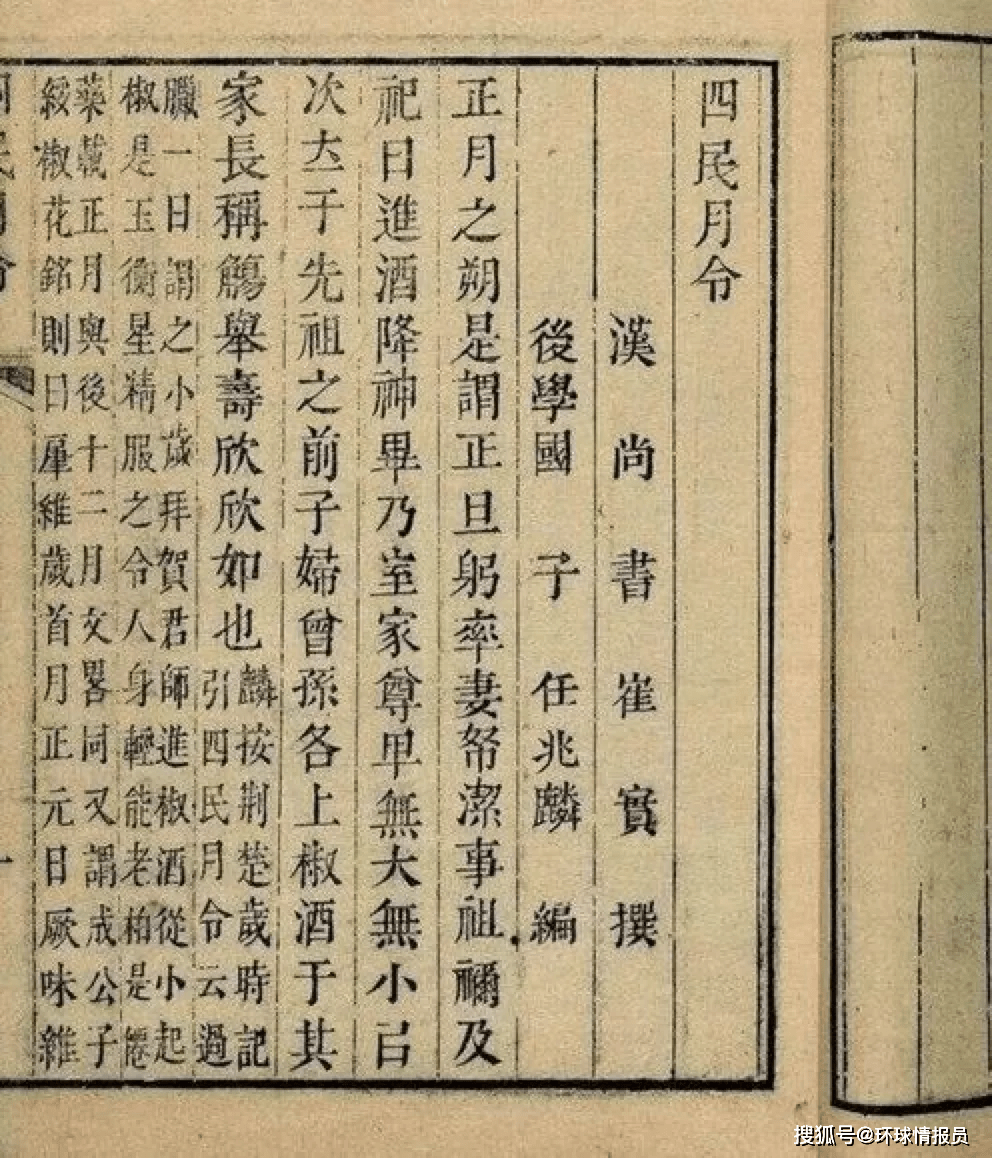 四民月令
漢尚書崔實撰
後學國子任兆麟編
正月之朔是謂正旦躬率妻帑潔事祖禰及
祀日進酒降神畢乃室家尊卑無大無小㠯
次于先祖之前子婦曾孫各上椒酒于其
家長稱觴舉壽欣欣如也
麟按荆楚歲時記
引四民月令云過
臘一日謂之小歲拜賀君師進椒酒從小起
椒是玉衡星精服之令人身輕能老柏是僊
藥載正月與後十二月文畧同又謂成公子
綏椒花銘則曰肈維歲首月正元日厥味維
搜狐号@环球情报员